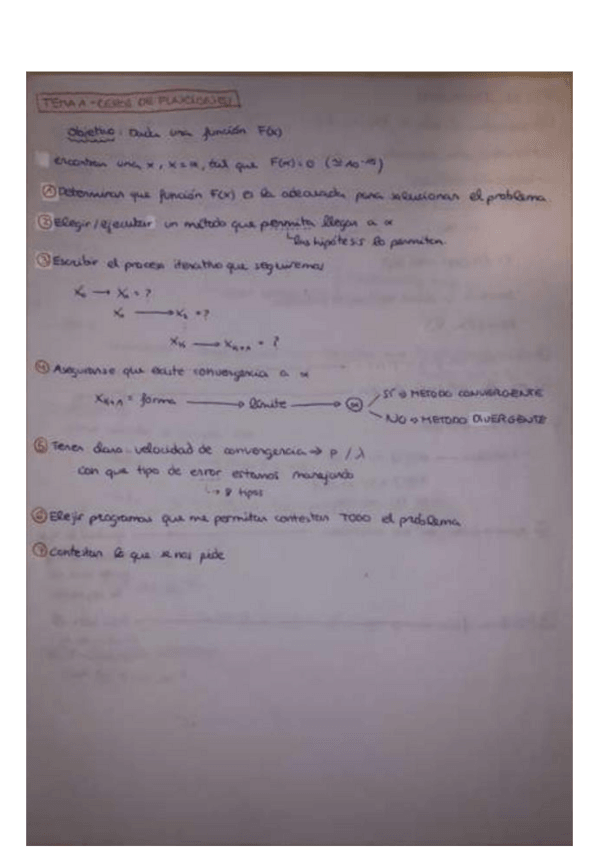 TEMA 1 - CEROS DE FUNCIONES
Objetivo: Dada una función F(x)
encontrar una x, x = α, tal que F(α) = 0
① Determinar que función F(x) es la adecuada para solucionar el problema.
② Elegir/ejecutar un método que permita llegar a α
↳ las hipótesis lo permiten
③ Escribir el proceso iterativo que seguiremos
X₀ → X₁ = ?
X₁ → X₂ = ?
Xₖ → Xₖ₊₁ = ?
④ Asegurarse que existe convergencia a α
Xₖ₊₁ = forma → límite → α
SÍ → METODO CONVERGENTE
NO → METODO DIVERGENTE
⑤ Tener claro velocidad de convergencia → P / λ
con que tipo de error estamos manejando
↳ tipos
⑥ Elejir programas que me permitan contestar TODO el problema
⑦ Contestar lo que se nos pide